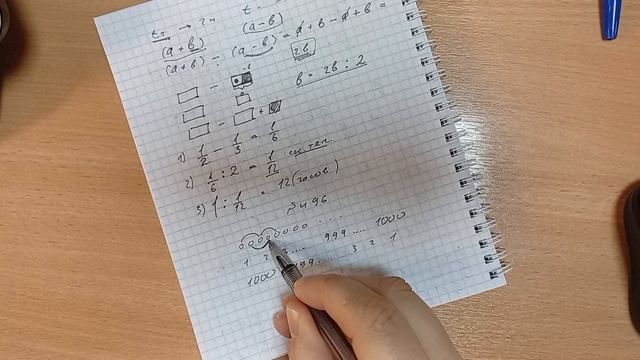 (a + b) (a - b)
(a + b) - (a - b) = a + b - a + b =
2b
b = 2b : 2
1) 1/2 - 1/3 = 1/6
2) 1/6 : 2 = 1/12
3) 1 : 1/12 = 12 (часов)
1 2 3 .... 999 .... 1000
1000 999 ... 3 2 1